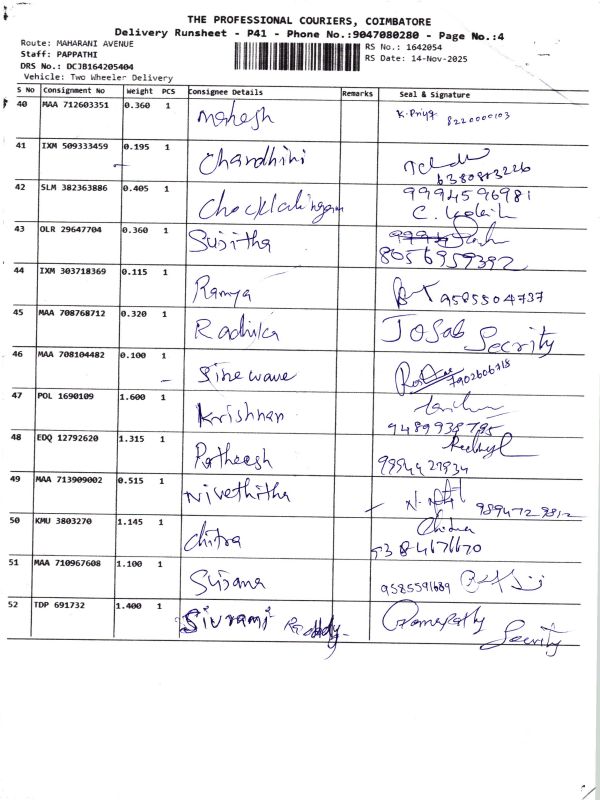 THE PROFESSIONAL COURIERS, COIMBATORE
Delivery Runsheet - P41 - Phone No.:9047080280 - Page No.:4
Route: MAHARANI AVENUE
RS No.: 1642054
Staff: PAPPATHI
RS Date: 14-Nov-2025
DRS No.: DCJB164205404
Vehicle: Two Wheeler Delivery
S No Consignment No Weight PCS Consignee Details Remarks Seal & Signature
40 MAA 712603351 0.360 1 Mahesh K. Priya 8220000103
41 IXM 509333459 0.195 1 Chandhini 6380873226
42 SLM 382363886 0.405 1 Chocklalingam 9994596981
43 OLR 29647704 0.360 1 Susitha 8056959392
44 IXM 303718369 0.115 1 Ramya 9585504737
45 MAA 708768712 0.320 1 Radhika Josab Security
46 MAA 708104482 0.100 1 Sinewave 7902606718
47 POL 1690109 1.600 1 Krishnan 9489938795
48 EDQ 12792620 1.315 1 Ratheesh 9994427934
49 MAA 713909002 0.515 1 Nivethitha 9894729812
50 KMU 3803270 1.145 1 Chitra Chitra
51 MAA 710967608 1.100 1 Susana 9585591689
52 TDP 691732 1.400 1 Sivrami Reddy Ganapathy Security